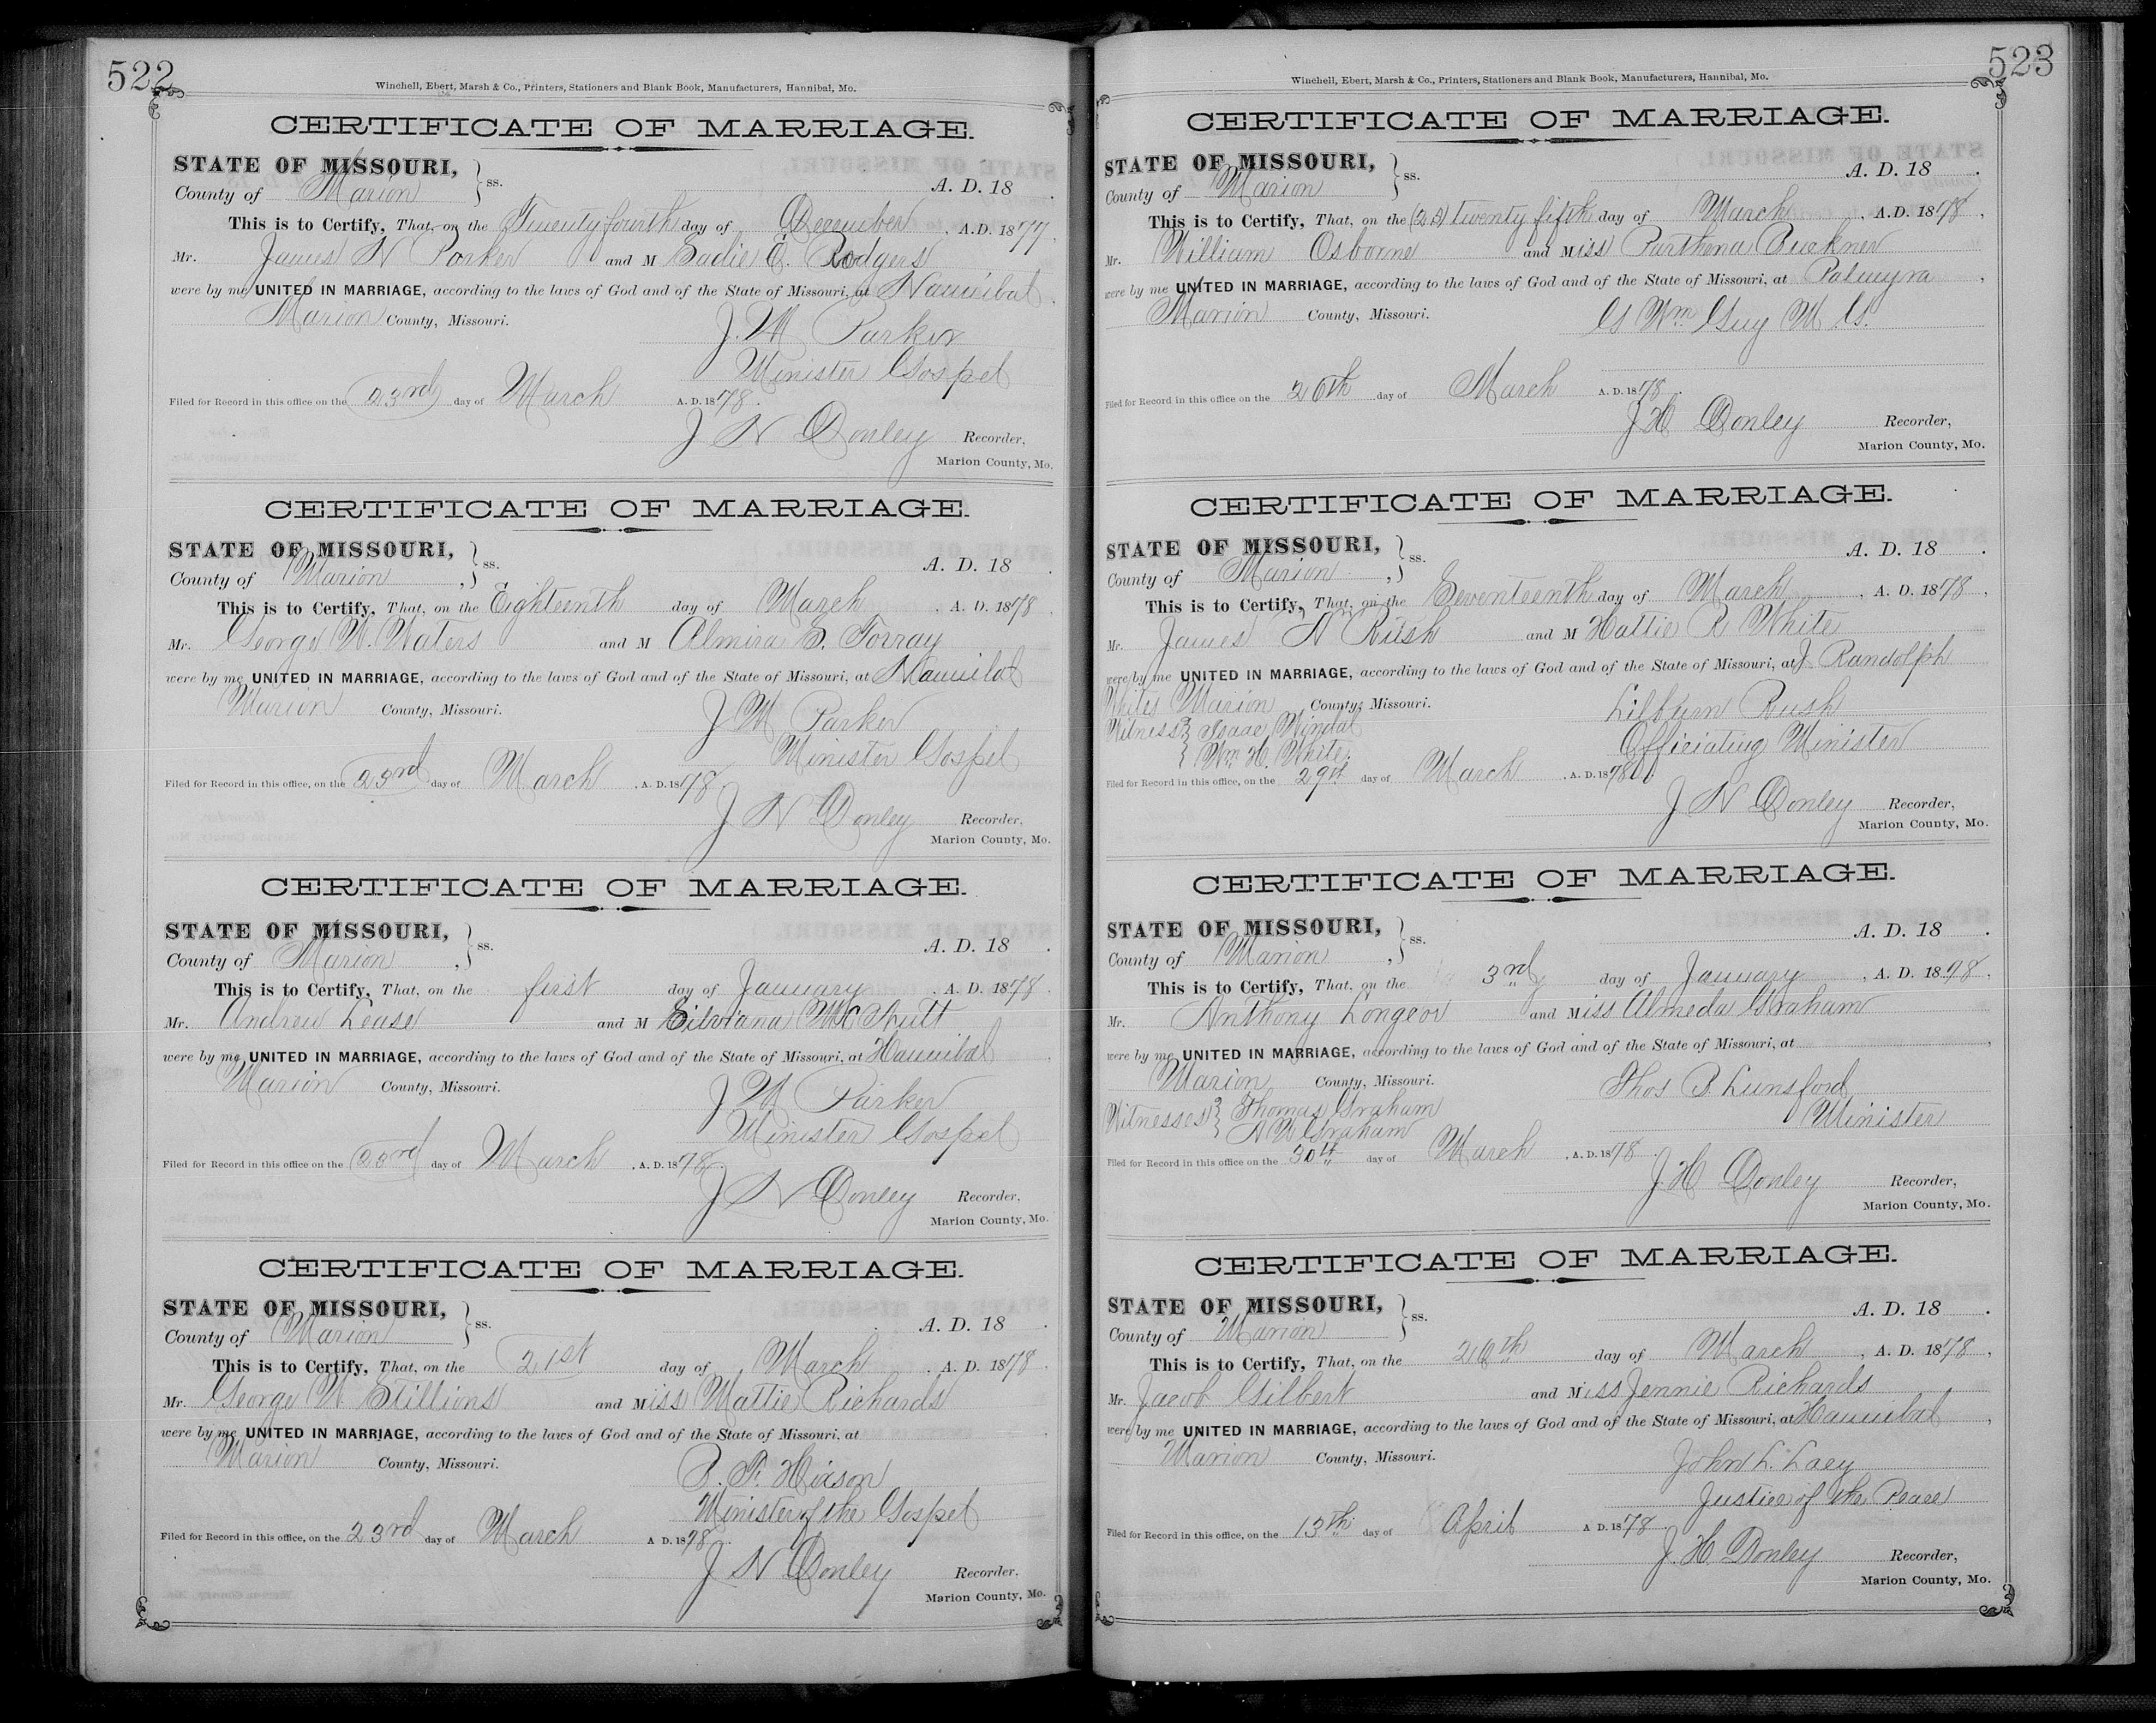 522
Winchell, Ebert, Marsh & Co., Printers, Stationers and Blank Book, Manufacturers, Hannibal, Mo.
CERTIFICATE OF MARRIAGE.
STATE OF MISSOURI, } ss.
County of Marion
A. D. 18 .
This is to Certify, That, on the Twenty fourth day of December, A.D. 1877.
Mr. James N Parker and M Sadie E. Rodgers
were by me UNITED IN MARRIAGE, according to the laws of God and of the State of Missouri, at Hannibal.
Marion County, Missouri.
J. M Parker
Minister Gospel
Filed for Record in this office on the 23rd day of March A. D. 1878.
J H Donley Recorder,
Marion County, Mo.
CERTIFICATE OF MARRIAGE.
STATE OF MISSOURI, } ss.
County of Marion
A. D. 18 .
This is to Certify, That, on the Eighteenth day of March, A. D. 1878
Mr. George W. Waters and M Almira S. Torray
were by me UNITED IN MARRIAGE, according to the laws of God and of the State of Missouri, at Hannibal
Marion County, Missouri.
J M Parker
Minister Gospel
Filed for Record in this office, on the 23rd day of March, A. D. 1878
J H Donley Recorder,
Marion County, Mo.
CERTIFICATE OF MARRIAGE.
STATE OF MISSOURI, } ss.
County of Marion
A. D. 18 .
This is to Certify, That, on the first day of January, A. D. 1878
Mr. Andrew Lease and M Silviana
were by me UNITED IN MARRIAGE, according to the laws of God and of the State of Missouri, at Hannibal
Marion County, Missouri.
J M Parker
Minister Gospel
Filed for Record in this office on the 23rd day of March, A. D. 1878.
J H Donley Recorder,
Marion County, Mo.
CERTIFICATE OF MARRIAGE.
STATE OF MISSOURI, } ss.
County of Marion
A. D. 18 .
This is to Certify, That, on the 21st day of March, A. D. 1878
Mr. George W. Stillions and Miss Mattie Richards
were by me UNITED IN MARRIAGE, according to the laws of God and of the State of Missouri, at
Marion County, Missouri.
B. F. Hixson
Minister of the Gospel
Filed for Record in this office, on the 23rd day of March A D. 1878.
J H Donley Recorder,
Marion County, Mo.
523
Winchell, Ebert, Marsh & Co., Printers, Stationers and Blank Book, Manufacturers, Hannibal, Mo.
CERTIFICATE OF MARRIAGE.
STATE OF MISSOURI, } ss.
County of Marion
A. D. 18 .
This is to Certify, That, on the (25) twenty fifth day of March, A.D. 1878,
Mr. William Osborne and Miss Parthena Buckner
were by me UNITED IN MARRIAGE, according to the laws of God and of the State of Missouri, at Palmyra,
Marion County, Missouri.
G Wm Guy M. G.
Filed for Record in this office on the 26th day of March A. D. 1878.
J H Donley Recorder,
Marion County, Mo.
CERTIFICATE OF MARRIAGE.
STATE OF MISSOURI, } ss.
County of Marion
A. D. 18 .
This is to Certify, That, on the Seventeenth day of March, A. D. 1878,
Mr. James A Rush and M Hattie R White
were by me UNITED IN MARRIAGE, according to the laws of God and of the State of Missouri, at J. Randolph
Whites Marion County, Missouri.
Lilburn Rush
Witness } Isaac Windal
Officiating Minister
} Wm H. White.
Filed for Record in this office, on the 29th day of March, A. D. 1878
J H Donley Recorder,
Marion County, Mo.
CERTIFICATE OF MARRIAGE.
STATE OF MISSOURI, } ss.
County of Marion
A. D. 18 .
This is to Certify, That, on the 3rd day of January, A. D. 1898,
Mr. Anthony Longeor and Miss Almeda Graham
were by me UNITED IN MARRIAGE, according to the laws of God and of the State of Missouri, at
Marion County, Missouri.
Thos B. Lunsford
Witnesses } Thomas Graham
Minister
} A W Graham
Filed for Record in this office on the 30th day of March, A. D. 1898.
J. H Donley Recorder,
Marion County, Mo.
CERTIFICATE OF MARRIAGE.
STATE OF MISSOURI, } ss.
County of Marion
A. D. 18 .
This is to Certify, That, on the 26th day of March, A. D. 1878,
Mr. Jacob Gilbert and Miss Jennie Richards
were by me UNITED IN MARRIAGE, according to the laws of God and of the State of Missouri, at Hannibal,
Marion County, Missouri.
John L. Lacy
Justice of the Peace
Filed for Record in this office, on the 13th day of April A D. 1878.
J. H Donley Recorder,
Marion County, Mo.